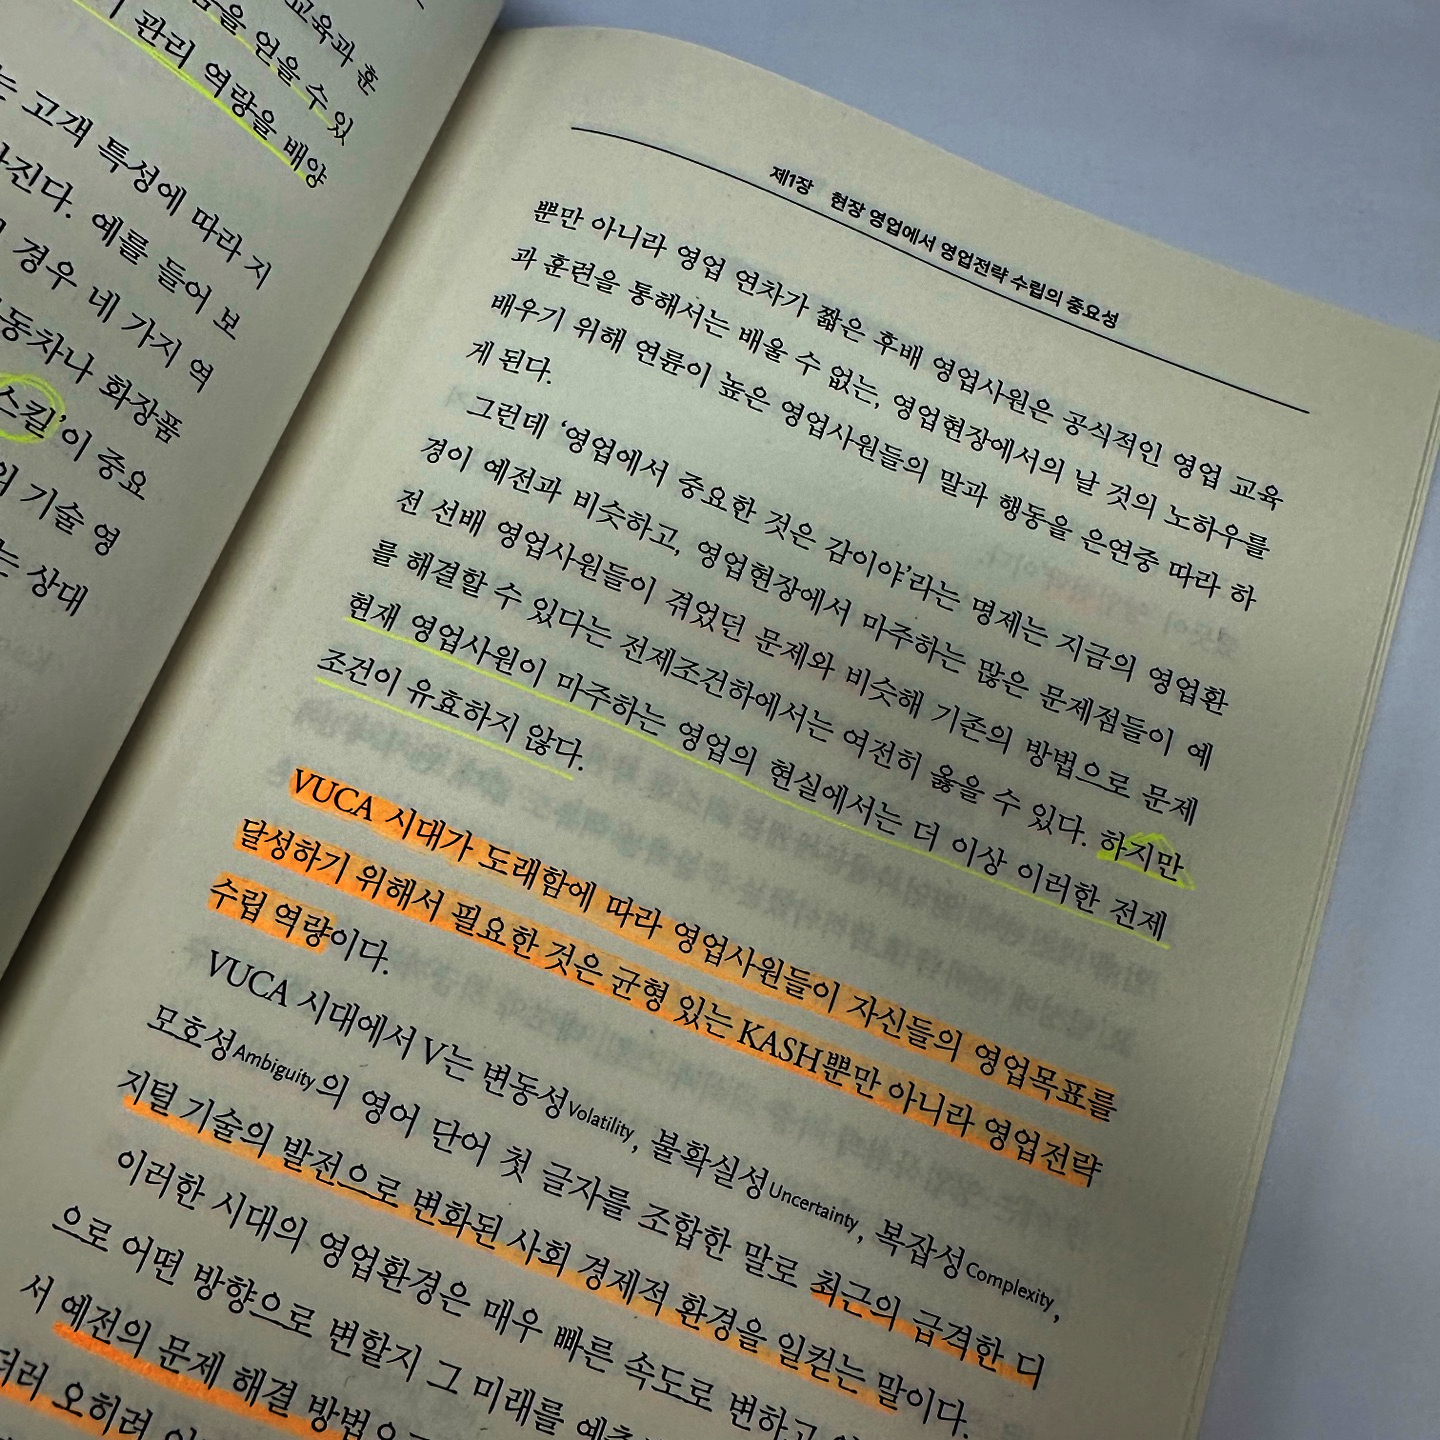 교육과 훈
을 얻을 수 있
관리 역량을 배양
는 고객 특성에 따라 지
진다. 예를 들어 보
경우 네 가지 역
동차나 화장품
스킬’이 중요
의 기술 영
는 상대
제1장 현장 영업에서 영업전략 수립의 중요성
뿐만 아니라 영업 연차가 짧은 후배 영업사원은 공식적인 영업 교육
과 훈련을 통해서는 배울 수 없는, 영업현장에서의 날 것의 노하우를
배우기 위해 연륜이 높은 영업사원들의 말과 행동을 은연중 따라 하
게 된다.
그런데 ‘영업에서 중요한 것은 감이야’라는 명제는 지금의 영업환
경이 예전과 비슷하고, 영업현장에서 마주하는 많은 문제점들이 예
전 선배 영업사원들이 겪었던 문제와 비슷해 기존의 방법으로 문제
를 해결할 수 있다는 전제조건하에서는 여전히 옳을 수 있다. 하지만
현재 영업사원이 마주하는 영업의 현실에서는 더 이상 이러한 전제
조건이 유효하지 않다.
VUCA 시대가 도래함에 따라 영업사원들이 자신들의 영업목표를
달성하기 위해서 필요한 것은 균형 있는 KASH뿐만 아니라 영업전략
수립 역량이다.
VUCA 시대에서 V는 변동성Volatility, 불확실성Uncertainty, 복잡성Complexity,
모호성Ambiguity의 영어 단어 첫 글자를 조합한 말로 최근의 급격한 디
지털 기술의 발전으로 변화된 사회 경제적 환경을 일컫는 말이다.
이러한 시대의 영업환경은 매우 빠른 속도로 변하고
으로 어떤 방향으로 변할지 그 미래를
서 예전의 문제 해결 방법으로
더러 오히려